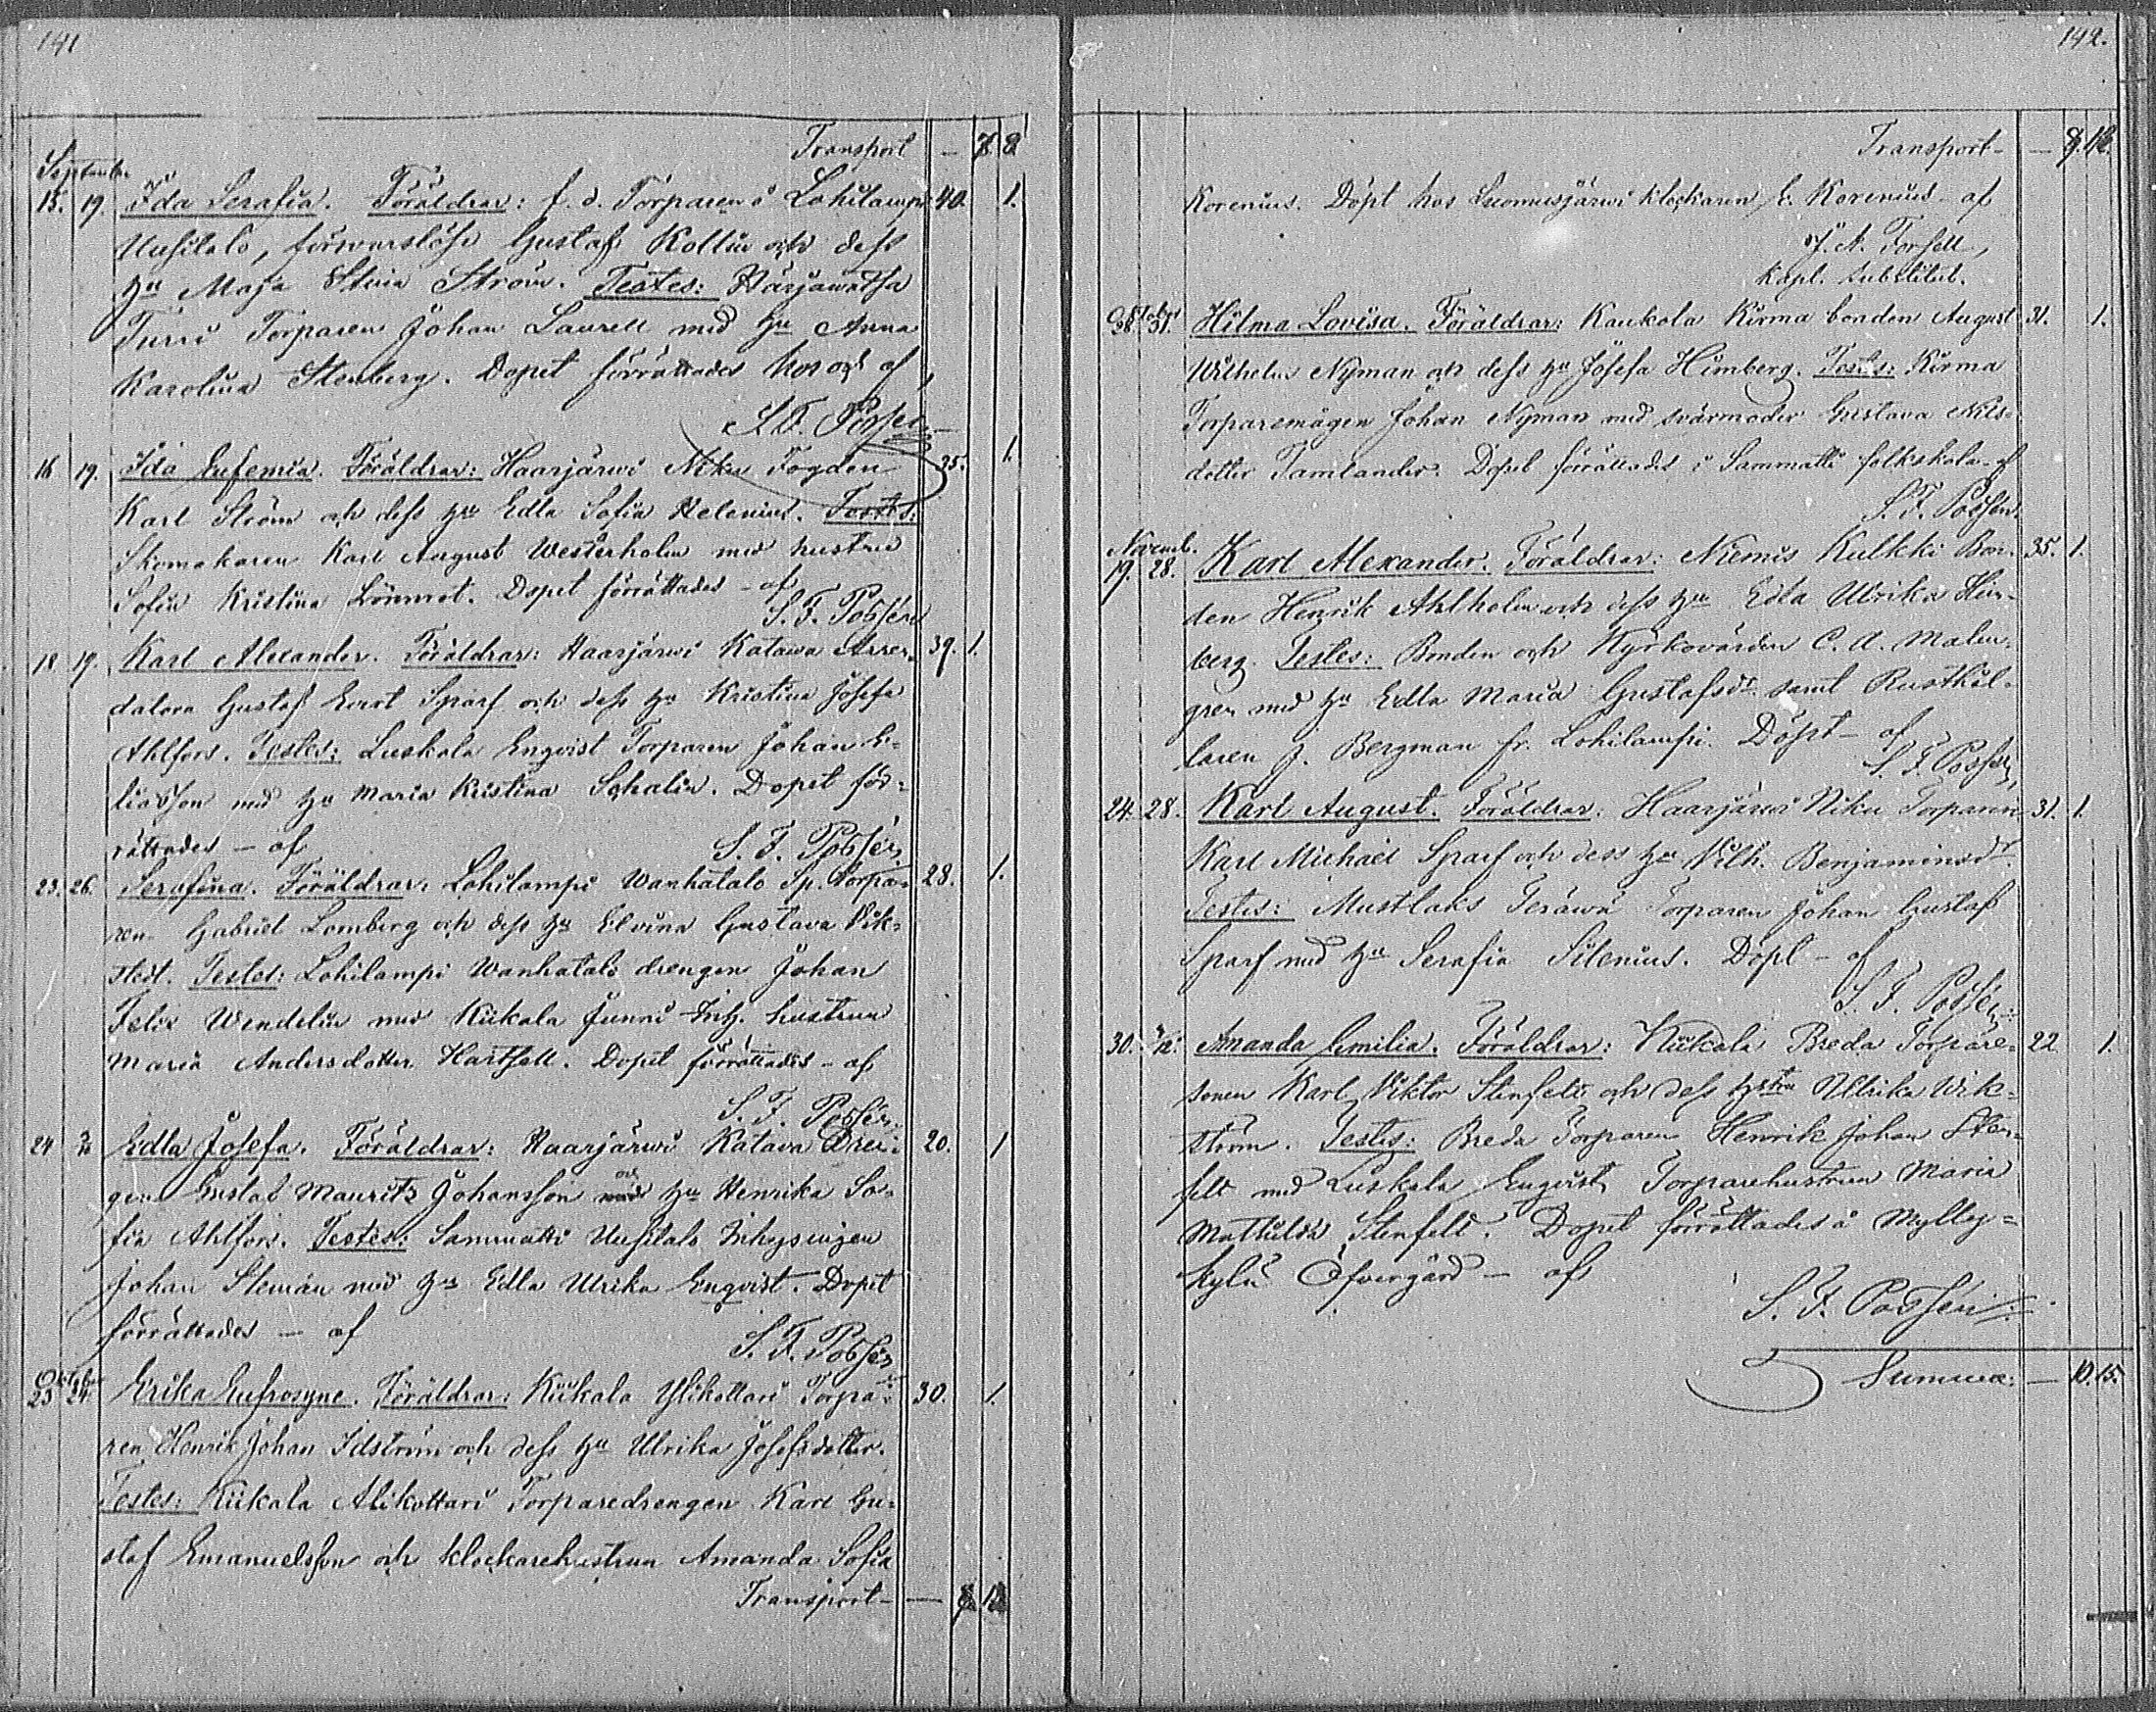 141
Transport — 7. 8.
September
15. 19. Ida Serafia. Föräldrar: f. d. Torparen å Lohilampi 40. 1.
Uusitalo, förswarslöse Gustaf Kollin och dess
hu Maja Stina Ström. Testes:
Turri Torparen Johan Laurell med hu Anna
Karolina Stenberg. Dopet förrättades af
S. F. Possén
16 19. Ida Eufemia. Föräldrar: Haarjärwi Niku Fogden 35. 1.
Karl Ström och dess hu Edla Sofia Helenius. Testes:
Skomakaren Karl August Westerholm med hustru
Sofia Kristina Lönnrot. Dopet förrättades – af
S. F. Possén
18 19. Karl Alexander. Föräldrar: Haarjärwi Katawa Arren- 39. 1.
datorn Gustaf Evert Sparf och dess hu Kristina Josefa
Ahlfors. Testes: Luskala Enqvist Torparen Johan E-
liasson med hu Maria Kristina Schalin. Dopet för-
rättades – af S. F. Possén
23. 26. Serafina. Föräldrar: Lohilampi Wanhatalo Sp. torpa- 28. 1.
ren Gabriel Lomberg och dess hu Elvina Gustava Vik-
stedt. Testes: Lohilampi Wanhatalo drengen Johan
Felix Wendelin med Kiikala Junni Inh. hustrun
Maria Andersdotter Hartsell. Dopet förrättades – af
S. F. Possén
24 Edla Josefa. Föräldrar: Haarjärwi Katava Dren- 20. 1
gen Gustaf Mauritz Johansson och hu Henrika So-
fia Ahlfors. Testes: Sammatti Uusitalo Inhysingen
Johan Stemán med hu Edla Ulrika Enqvist. Dopet
förrättades — af
S. F. Possén
October
23 24. Erika Eufrosyne. Föräldrar: Kiikala Ylikottari Torpa- 30. 1.
ren Henrik Johan Idström och dess hu Ulrika Josefsdotter.
Testes: Kiikala Alikottari Torparedrengen Karl Gu-
staf Emanuelsson och klockarehustrun Amanda Sofia
Transport — 8.
142.
Transport —
Korenius. Döpt hos Luomusjärwi klockaren E. Korenius – af
J. A. Forsell,
Kapl. substitut.
October
28. 31. Hilma Lovisa. Föräldrar: Kaukola Kirma bonden August 31. 1.
Wilhelm Nyman och dess hu Josefa Himberg. Testes: Kirma
Torparemågen Johan Nyman med svärmoder Gustava Nils-
dotter Tamlander. Dopet förrättades i Sammatti folkskola – af
S. F. Possén.
Novemb.
19. 28. Karl Alexander. Föräldrar: Niemis Kulkki Bon- 35. 1.
den Henrik Ahlholm och dess hu Edla Ulrika Him-
berg. Testes: Bonden och Kyrkovärden C. A. Malm-
gren med hu Edla Maria Gustafsdr samt Rusthål-
laren J. Bergman fr. Lohilampi. Döpt – af
S. F. Possén
24. 28. Karl August. Föräldrar: Haarjärwi Niku Torparen 31. 1.
Karl Michaël Sparf och dess hu Vilh. Benjaminsdr
Testes: Mustlaks Teräwä Torparen Johan Gustaf
Sparf med hu Serafia Silenius. Döpt – af
S. F. Possén
30. Amanda Emilia. Föräldrar: Kiikala Breda Torpare- 22 1.
sonen Karl Viktor Stenfelt och dess hstru Ulrika Wik-
ström. Testes: Breda Torparen Henrik Johan Sten-
felt med Luskala Enqvist Torparehustrun Maria
Mathilda Stenfelt. Dopet förrättades å Mylly-
kylä Öfvergård — af
S. F. Possén
Summa: — 10. 15.